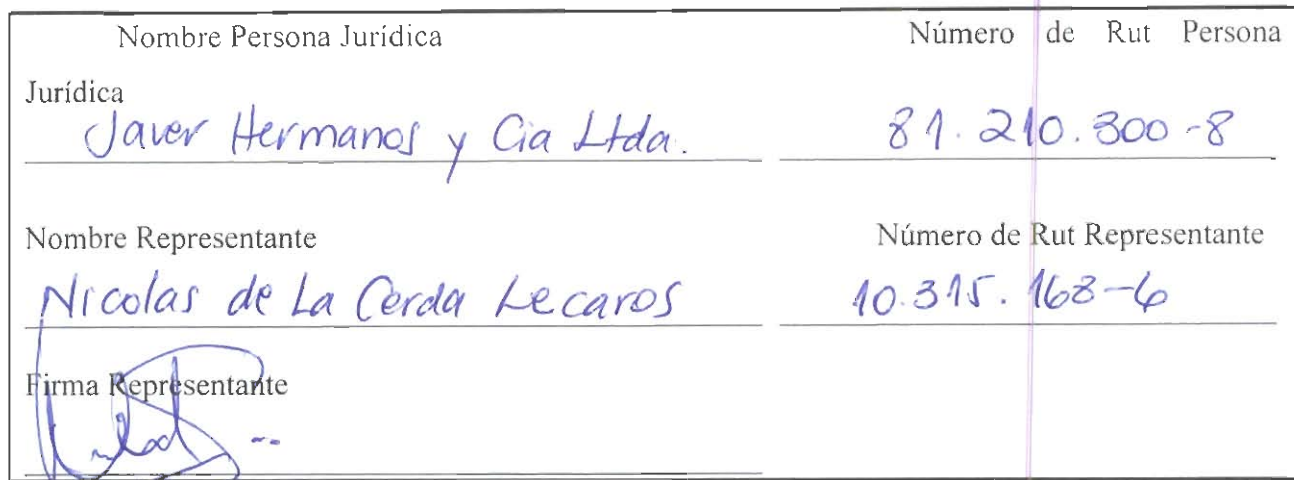 Nombre Persona Jurídica Número de Rut Persona
Jurídica
Javer Hermanos y Cia Ltda. 81.210.300-8
Nombre Representante Número de Rut Representante
Nicolas de La Cerda Lecaros 10.315.168-6
Firma Representante